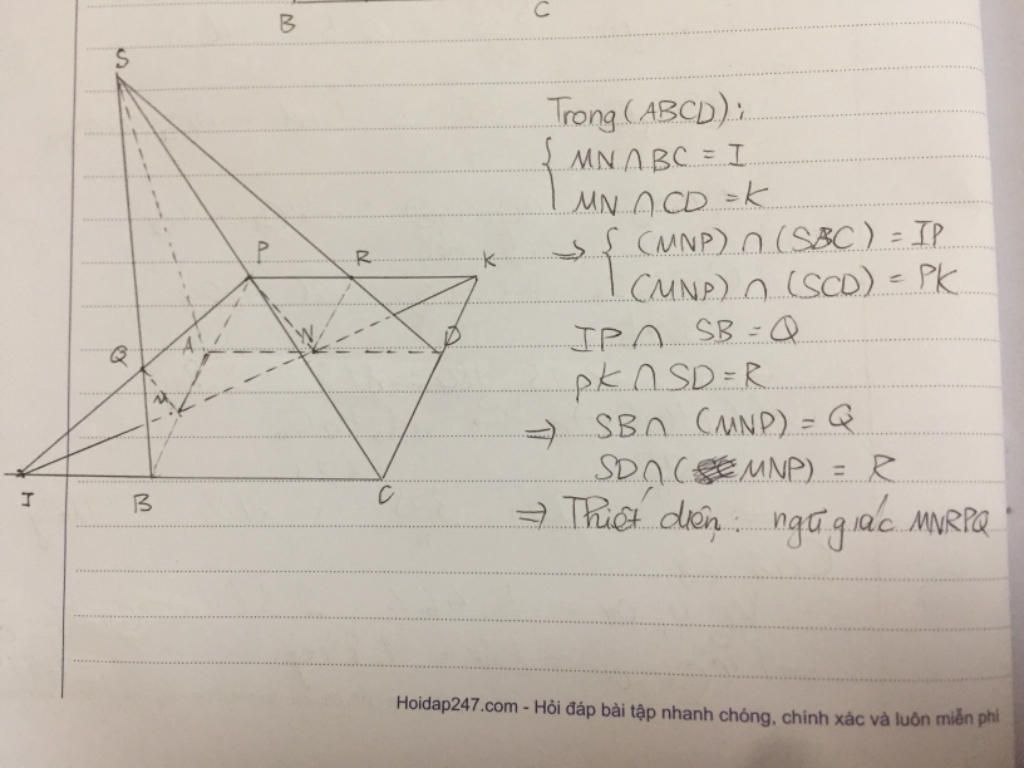 B C
S
Trong (ABCD):
{ MN ∩ BC = I
MN ∩ CD = K
P R K
⇒ { (MNP) ∩ (SBC) = IP
(MNP) ∩ (SCD) = PK
Q A N D
IP ∩ SB = Q
PK ∩ SD = R
M
⇒ SB ∩ (MNP) = Q
SD ∩ (MNP) = R
I B C
⇒ Thiết diện: ngũ giác MNRPQ
Hoidap247.com - Hỏi đáp bài tập nhanh chóng, chính xác và luôn miễn phí